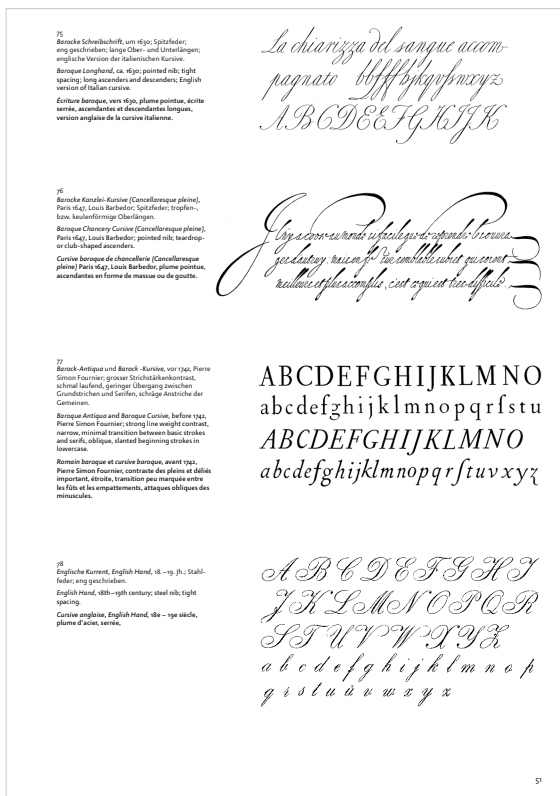 75
Barocke Schreibschrift, um 1630; Spitzfeder;
eng geschrieben; lange Ober- und Unterlängen;
englische Version der italienischen Kursive.
Baroque Longhand, ca. 1630; pointed nib; tight
spacing; long ascenders and descenders; English
version of Italian cursive.
Écriture baroque, vers 1630, plume pointue, écrite
serrée, ascendantes et descendantes longues,
version anglaise de la cursive italienne.
La chiarizza del sangue accom-
pagnato
A B C D E E F G H I J K
76
Barocke Kanzlei-Kursive (Cancellaresque pleine),
Paris 1647, Louis Barbedor; Spitzfeder; tropfen-,
bzw. keulenförmige Oberlängen.
Baroque Chancery Cursive (Cancellaresque pleine),
Paris 1647, Louis Barbedor; pointed nib; teardrop-
or club-shaped ascenders.
Cursive baroque de chancellerie (Cancellaresque
pleine) Paris 1647, Louis Barbedor, plume pointue,
ascendantes en forme de massue ou de goutte.
77
Barock-Antiqua und Barock -Kursive, vor 1742, Pierre
Simon Fournier; grosser Strichstärkenkontrast,
schmal laufend, geringer Übergang zwischen
Grundstrichen und Serifen, schräge Anstriche der
Gemeinen.
Baroque Antiqua and Baroque Cursive, before 1742,
Pierre Simon Fournier; strong line weight contrast,
narrow, minimal transition between basic strokes
and serifs, oblique, slanted beginning strokes in
lowercase.
Romain baroque et cursive baroque, avant 1742,
Pierre Simon Fournier, contraste des pleins et déliés
important, étroite, transition peu marquée entre
les fûts et les empattements, attaques obliques des
minuscules.
ABCDEFGHIJKLMNO
abcdefghijklmnopqrſstu
ABCDEFGHIJKLMNO
abcdefghijklmnopqrſtuvxyz
78
Englische Kurrent, English Hand, 18.–19. Jh.; Stahl-
feder; eng geschrieben.
English Hand, 18th–19th century; steel nib; tight
spacing.
Cursive anglaise, English Hand, 18e – 19e siècle,
plume d'acier, serrée,
A B C D E F G H I
J K L M N O P Q R
S T U V W X Y Z
a b c d e f g h i j k l m n o p
q r s t u ü v w x y z
51